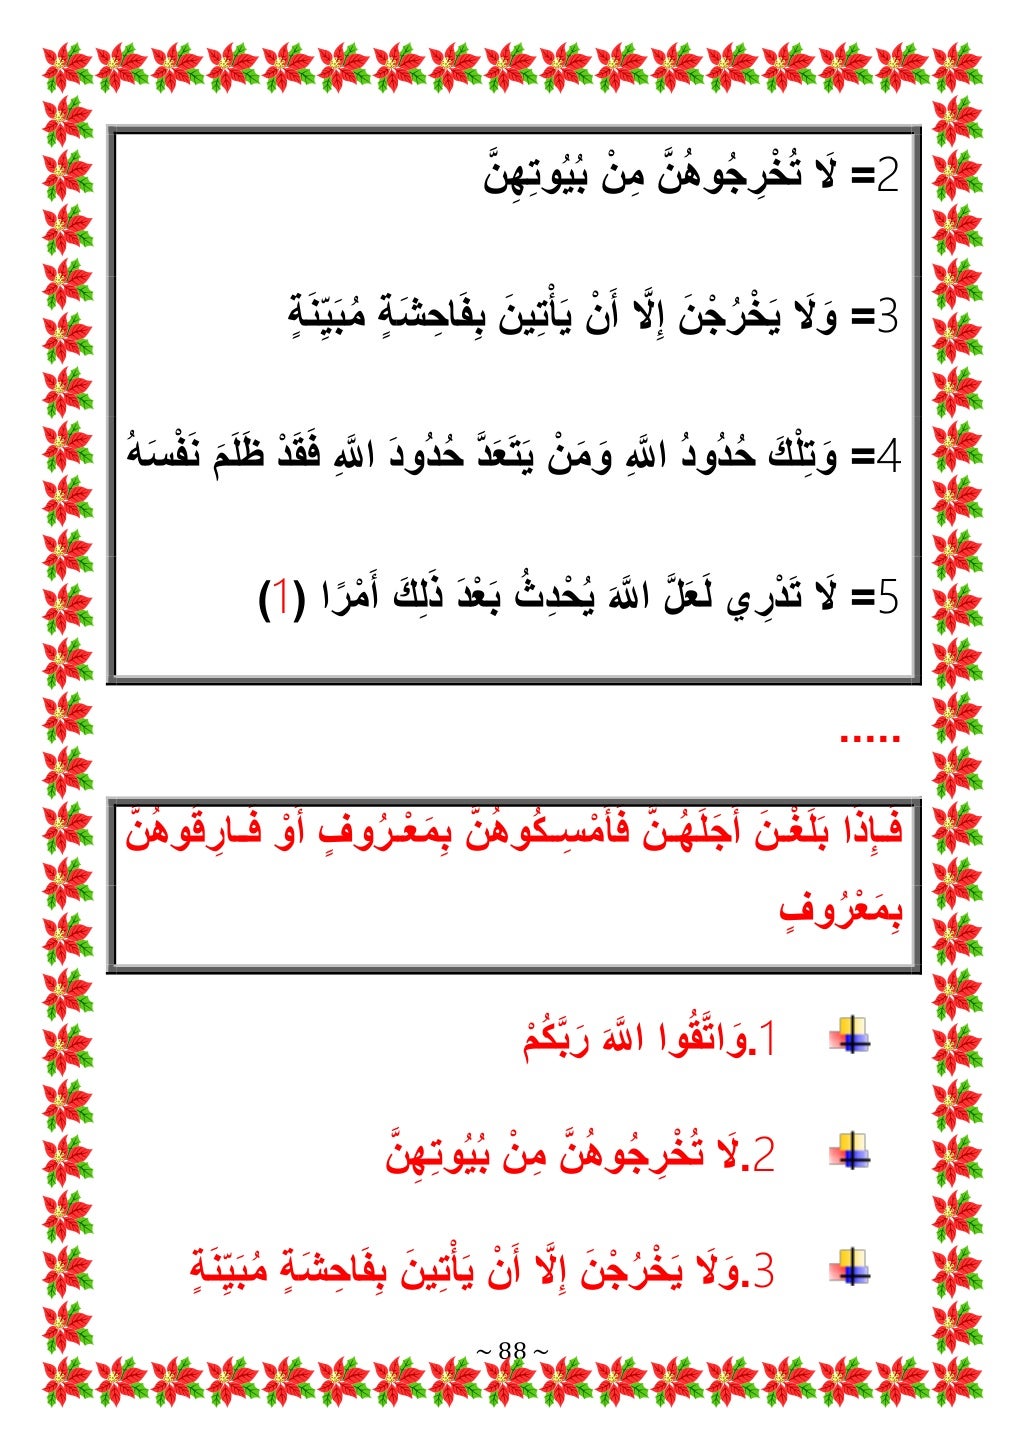 2= لَا تُخْرِجُوهُنَّ مِنْ بُيُوتِهِنَّ
3= وَلَا يَخْرُجْنَ إِلَّا أَنْ يَأْتِينَ بِفَاحِشَةٍ مُبَيِّنَةٍ
4= وَتِلْكَ حُدُودُ اللَّهِ وَمَنْ يَتَعَدَّ حُدُودَ اللَّهِ فَقَدْ ظَلَمَ نَفْسَهُ
5= لَا تَدْرِي لَعَلَّ اللَّهَ يُحْدِثُ بَعْدَ ذَلِكَ أَمْرًا (1)
.....
فَـإِذَا بَلَغْـنَ أَجَلَهُـنَّ فَأَمْسِـكُوهُنَّ بِمَعْـرُوفٍ أَوْ فَـارِقُوهُنَّ
بِمَعْرُوفٍ
1.وَاتَّقُوا اللَّهَ رَبَّكُمْ
2.لَا تُخْرِجُوهُنَّ مِنْ بُيُوتِهِنَّ
3.وَلَا يَخْرُجْنَ إِلَّا أَنْ يَأْتِينَ بِفَاحِشَةٍ مُبَيِّنَةٍ
~ 88 ~